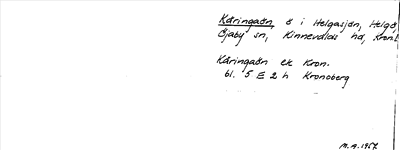 Käringaön, ö i Helgasjön, Helgö,
Öjaby sn, Kinnevalds hd, Kron.l.
Käringaön ek Kron.
bl. 5 E 2 h Kronoberg
M.A. 1957